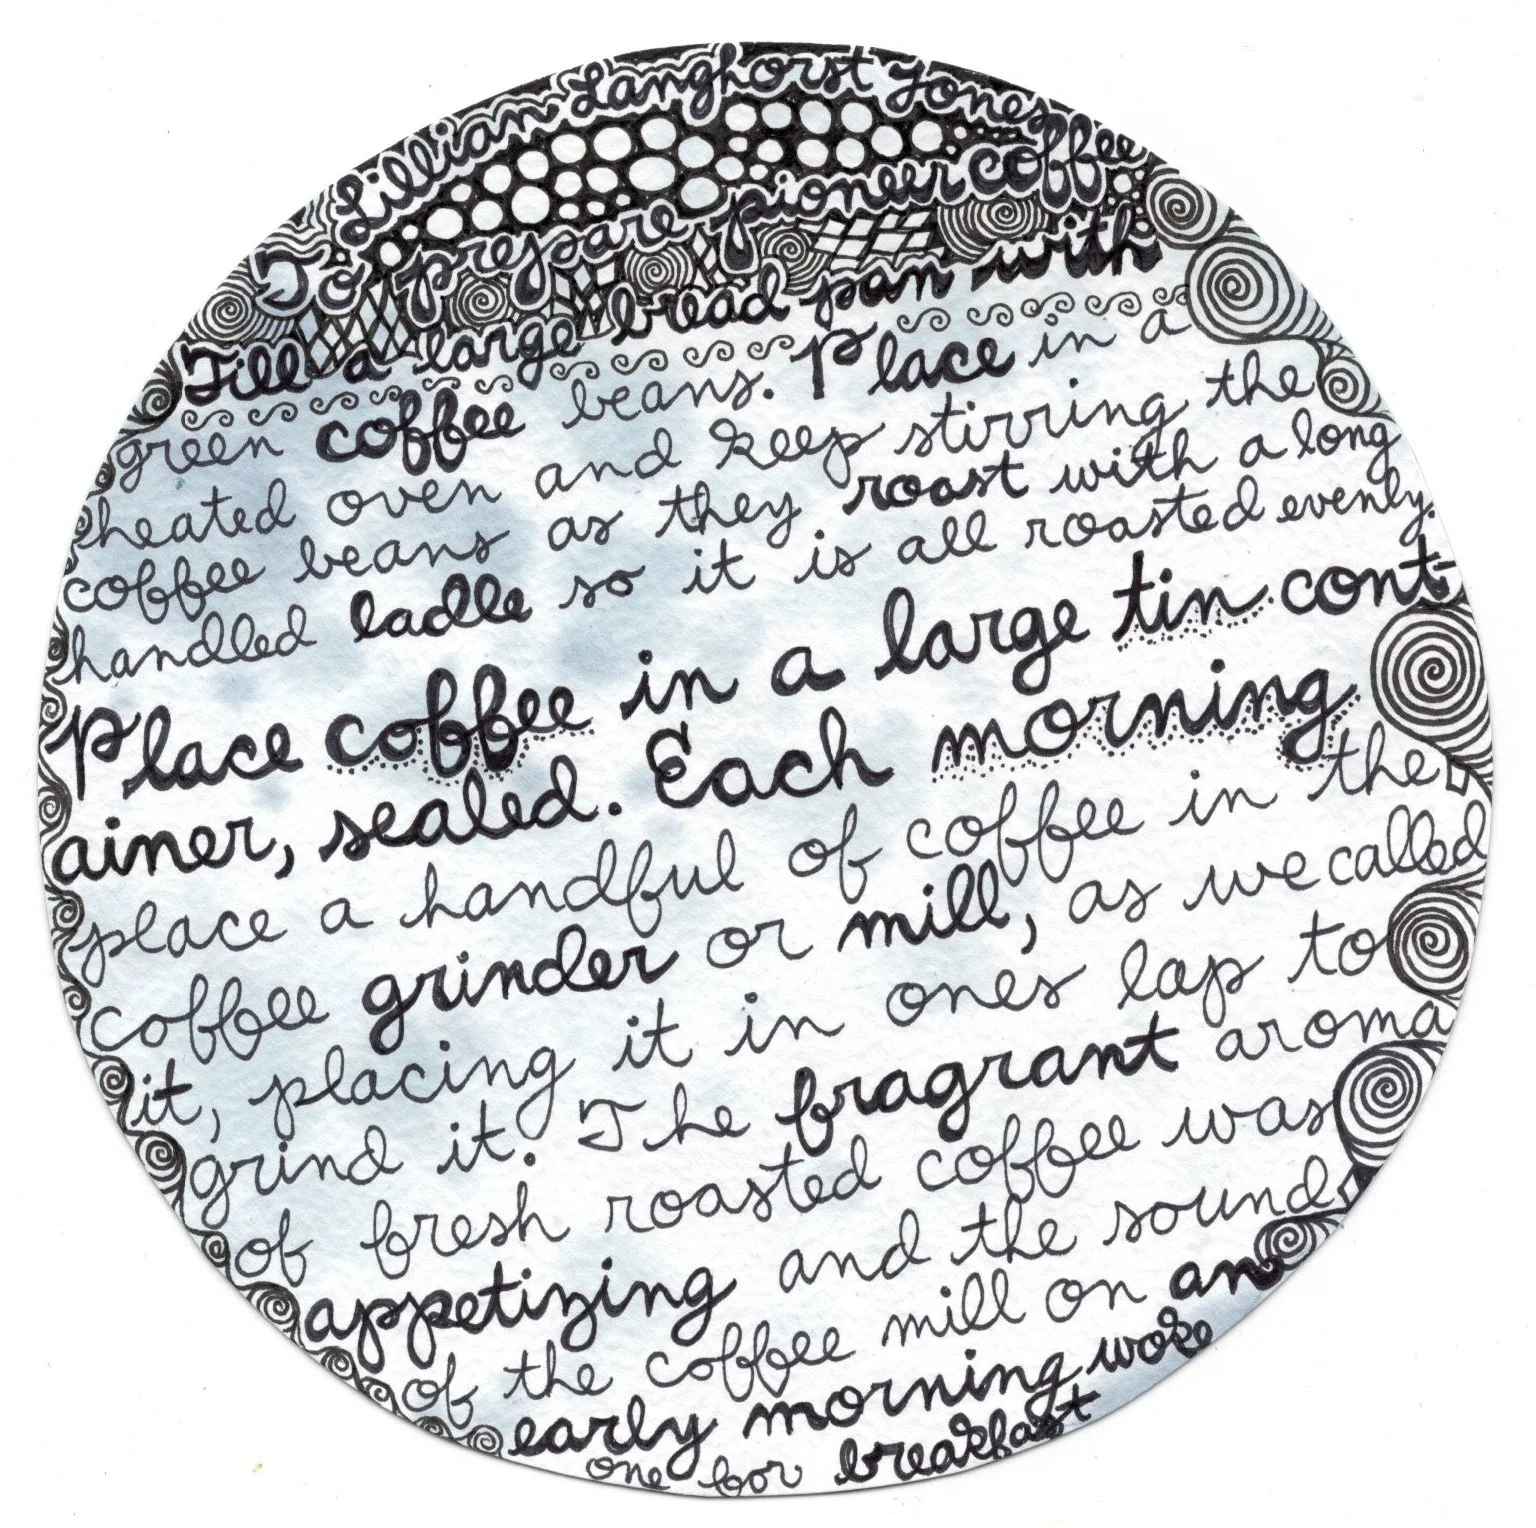 Lillian Langhorst Jones
To prepare pioneer coffee
Fill a large bread pan with
green coffee beans. Place in a
heated oven and keep stirring the
coffee beans as they roast with a long
handled ladle so it is all roasted evenly.
Place coffee in a large tin cont-
ainer, sealed. Each morning
place a handful of coffee in the
coffee grinder or mill, as we called
it, placing it in ones lap to
grind it. The fragrant aroma
of fresh roasted coffee was
appetizing and the sound
of the coffee mill on an
early morning woke
one for breakfast